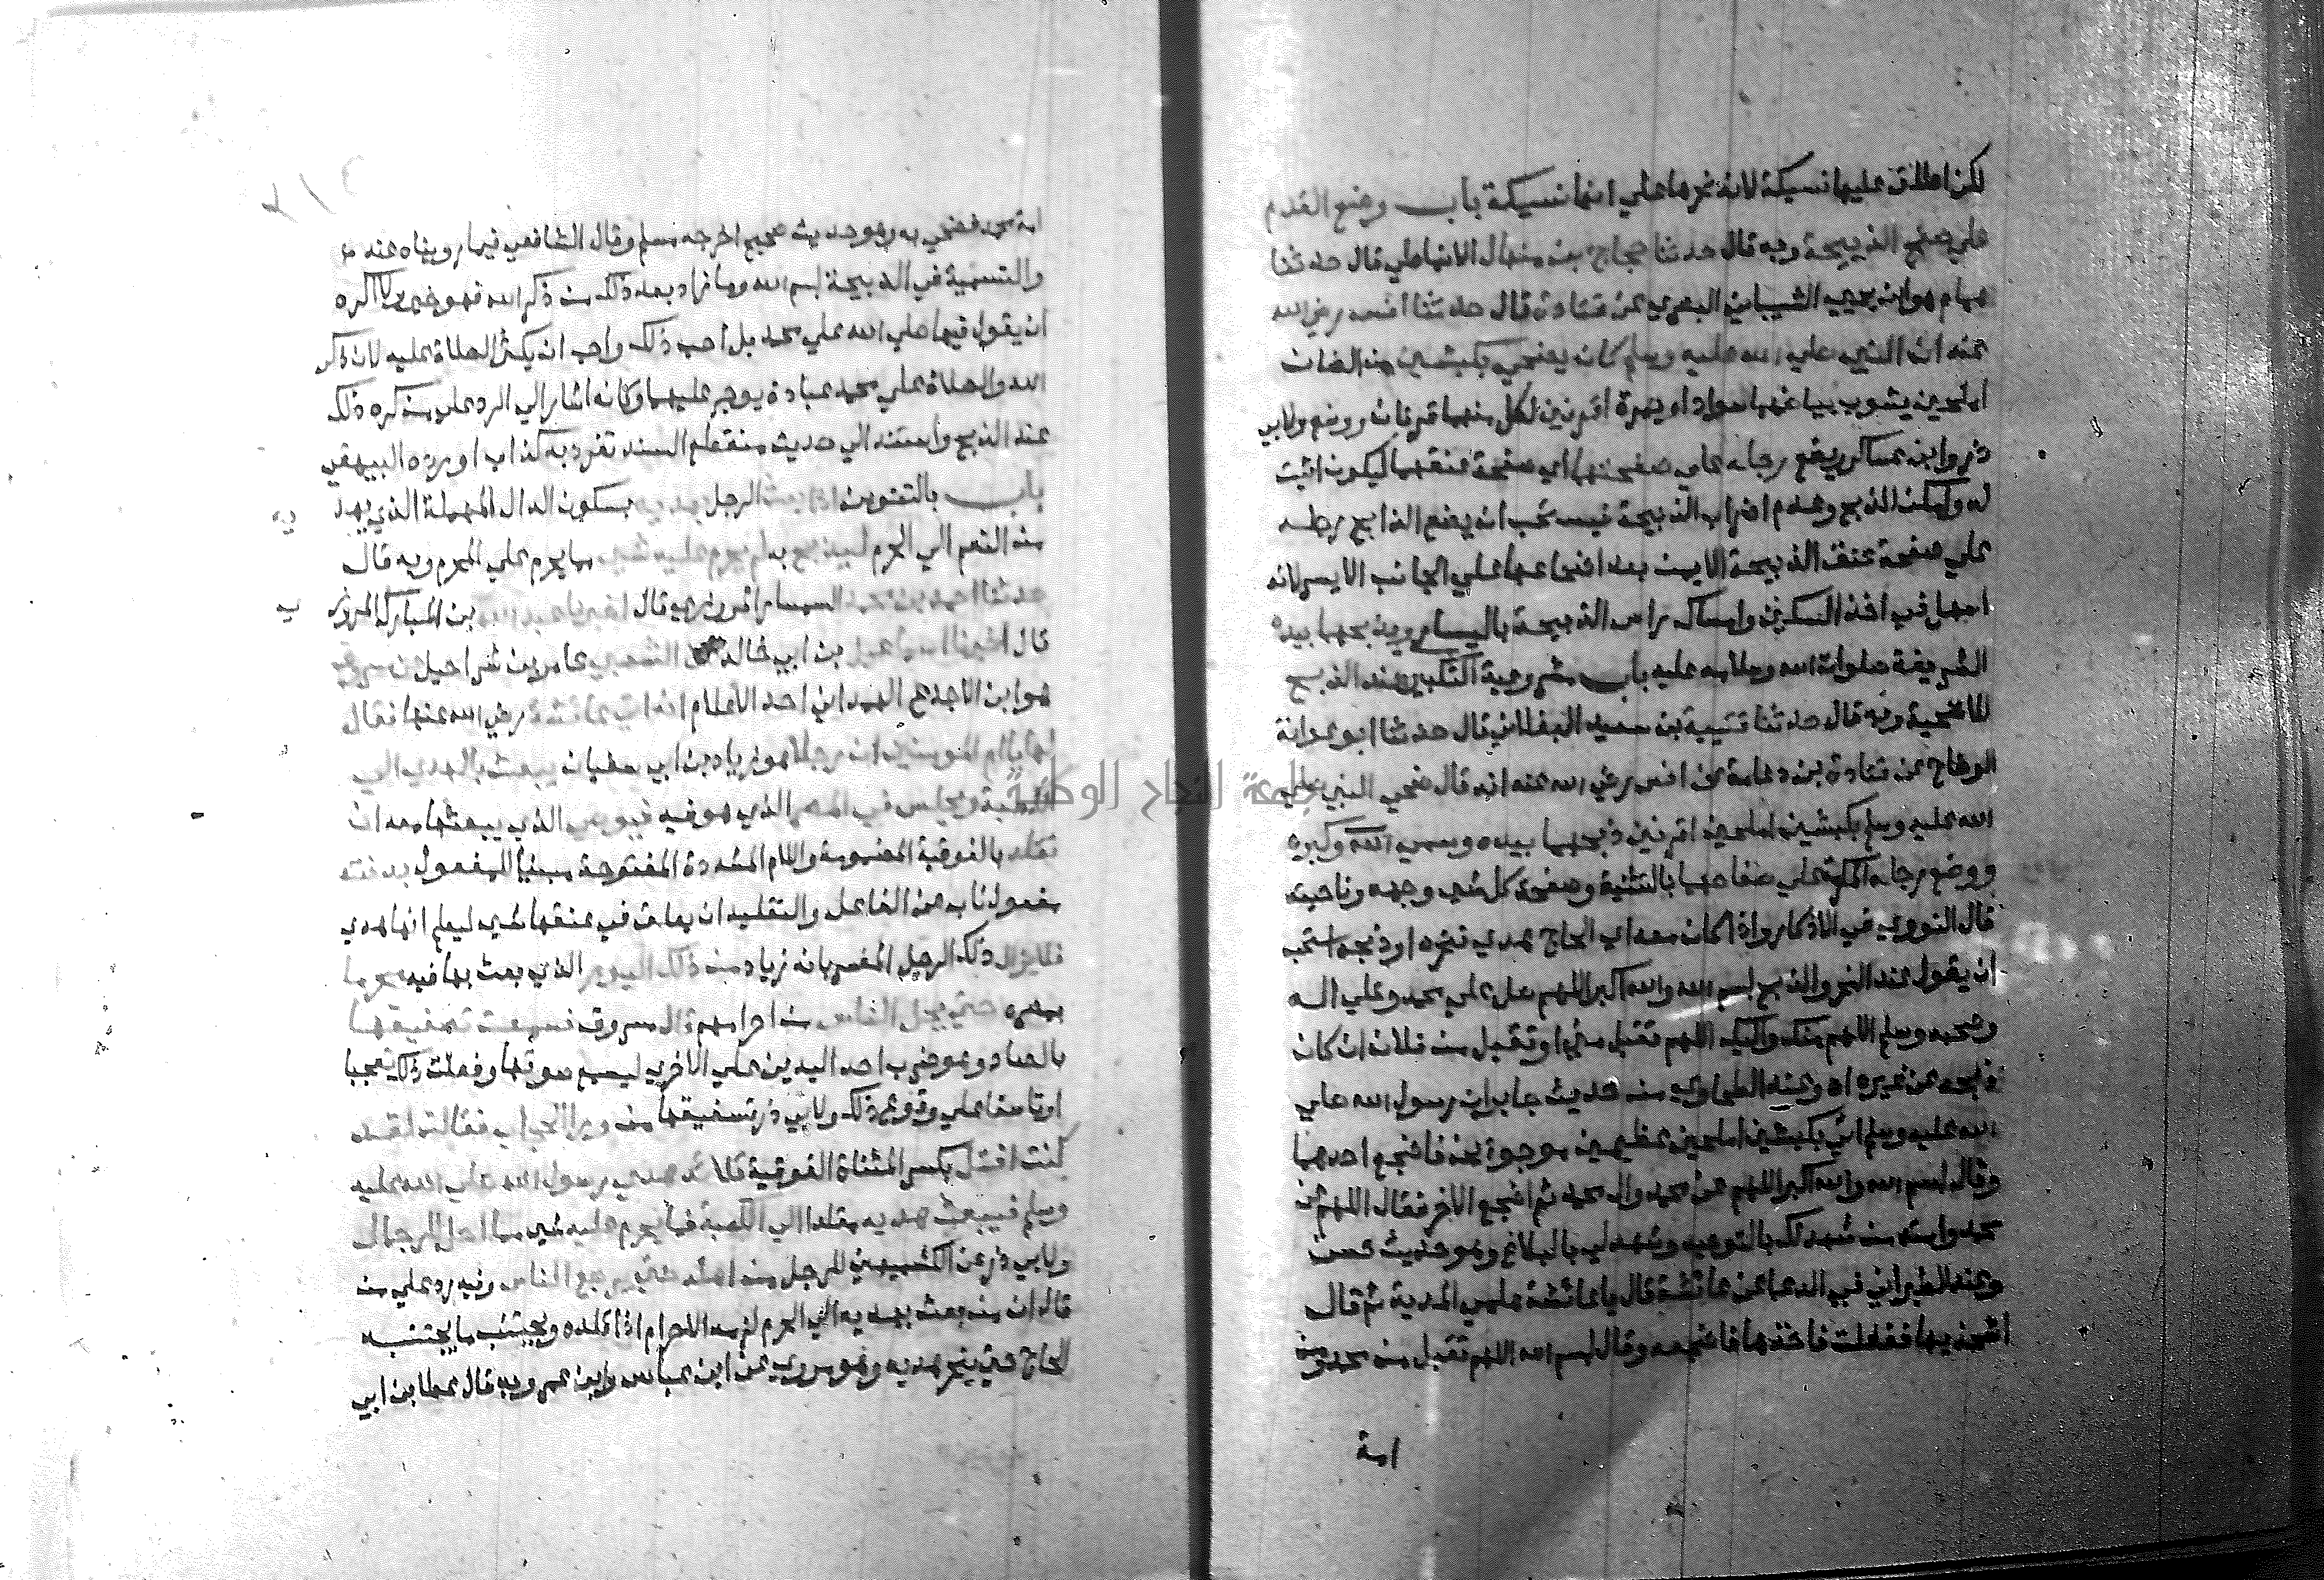 لكن اطلاق عليها نسيكة لانه نحرها على انها نسيكة باب وضع القدم
على صفح الذبيحة وبه قال حدثنا حجاج بن منهال الانماطي قال حدثنا
همام هو ابن يحيى الشيباني البصري عن قتادة قال حدثنا انس رضي الله
عنه ان النبي صلى الله عليه وسلم كان يضحي بكبشين من الضان
املحين يشوب بياضهما سواد او اقرنين لكل منهما قرنان ووضع ولابي
ذر وابن عساكر ويضع رجله على صفحتهما اي صفحة عنقهما ليكون اثبت
له وامكن للذبح وعدم اضراب الذبيحة فيستحب ان يضع الذابح رجله
على صفحة عنق الذبيحة الايمن بعد اضجاعها على الجانب الايسر لانه
اسهل في اخذ السكين وامساك راس الذبيحة باليسار ويذبحهما بيده
الشريفة صلوات الله وسلامه عليه باب مشروعية التكبير عند الذبح
للاضحية وبه قال حدثنا قتيبة بن سعيد قال حدثنا ابو عوانة
الوضاح عن قتادة بن دعامة عن انس رضي الله عنه انه قال ضحى النبي صلى
الله عليه وسلم بكبشين املحين اقرنين ذبحهما بيده وسمى الله وكبره
ووضع رجله المكرمة على صفاحهما بالتثنية وصفحة كل شي وجهه وناحيته
قال النووي في الاذكار واذا كان معه اي الحاج هدي فنحره او ذبحه استحب
ان يقول عند النحر والذبح بسم الله والله اكبر اللهم صل على محمد وعلى اله
وصحبه وسلم اللهم منك واليك اللهم تقبل مني او تقبل من فلان ان كان
ذبحه عن غيره اه وعند الطحاوي من حديث جابر ان رسول الله صلى
الله عليه وسلم اتي بكبشين املحين عظيمين موجوئين فاضجع احدهما
وقال بسم الله والله اكبر اللهم عن محمد وال محمد ثم اضجع الاخر فقال اللهم عن
محمد وامته من شهد لك بالتوحيد وشهد لي بالبلاغ وهو حديث حسن
وعند الطبراني في الدعا عن عائشة قال يا عائشة هلمي المدية ثم قال
اشحذيها ففعلت فاخذها فاضجعه وقال بسم الله اللهم تقبل من محمد ومن
امة
امة محمد فضحى به وهو حديث صحيح اخرجه مسلم وقال الشافعي فيما رويناه عنه
والتسمية في الذبيحة بسم الله وما زاد بعد ذلك من ذكر الله فهو خير ولا اكره
ان يقول فيها صلى الله على محمد بل احب ذلك واحب ان يكثر الصلاة عليه لان ذكر
الله والصلاة على محمد عبادة يوجر عليها وكانه اشار الى الرد على من كره ذلك
عند الذبح واستند الى حديث منقطع السند تفرد به كذاب اورده البيهقي
باب بالتنوين اذا بعث الرجل بهديه بسكون الدال المهملة الذي يهديه
من النعم الى الحرم ليذبح به لم يحرم عليه شي مما يحرم على المحرم وبه قال
حدثنا احمد بن محمد السمسار المروزي قال اخبرنا عبد الله بن المبارك المروزي
قال اخبرنا اسماعيل بن ابي خالد الشعبي عامر بن شراحيل عن مسروق
هو ابن الاجدع الهمداني احد الاعلام انه اتى عائشة رضي الله عنها فقال
لها يا ام المومنين ان رجلا هو زياد بن ابي سفيان يبعث بالهدي الى
الكعبة ويجلس في المصر الذي هو فيه فيوصي الذي يبعثها معه ان
تقلد بالفوقية المضمومة واللام المشددة المفتوحة مبنيا للمفعول بدنته
مفعول ناب عن الفاعل والتقليد ان يعلق في عنقها شي ليعلم انها هدي
فلا يزال ذلك الرجل المفسر بانه زياد من ذلك اليوم الذي بعث بها فيه محرما
بمصره حتى يحل الناس من احرامهم قال مسروق فسمعت تصفيقها
بالصاد وهو ضرب احد اليدين على الاخرى ليسمع صوتها وفعلت ذلك تعجبا
او تاسفا على وقوع ذلك ولابي ذر تسفيقها من ورا الحجاب فقالت لقد
كنت افتل بكسر المثناة الفوقية قلائد هدي رسول الله صلى الله عليه
وسلم فيبعث هديه مقلدا الى الكعبة فما يحرم عليه شي مما احل للرجال
ولابي ذر عن الكشميهني للرجل من اهله حتى يرجع الناس وفيه رد على من
قال ان من بعث بهديه الى الحرم لزمه الاحرام اذا قلده ويجتنب ما يجتنبه
الحاج حتى ينحر هديه وهو مروي عن ابن عباس وابن عمر وبه قال عطا بن ابي
جامعة النجاح الوطنية